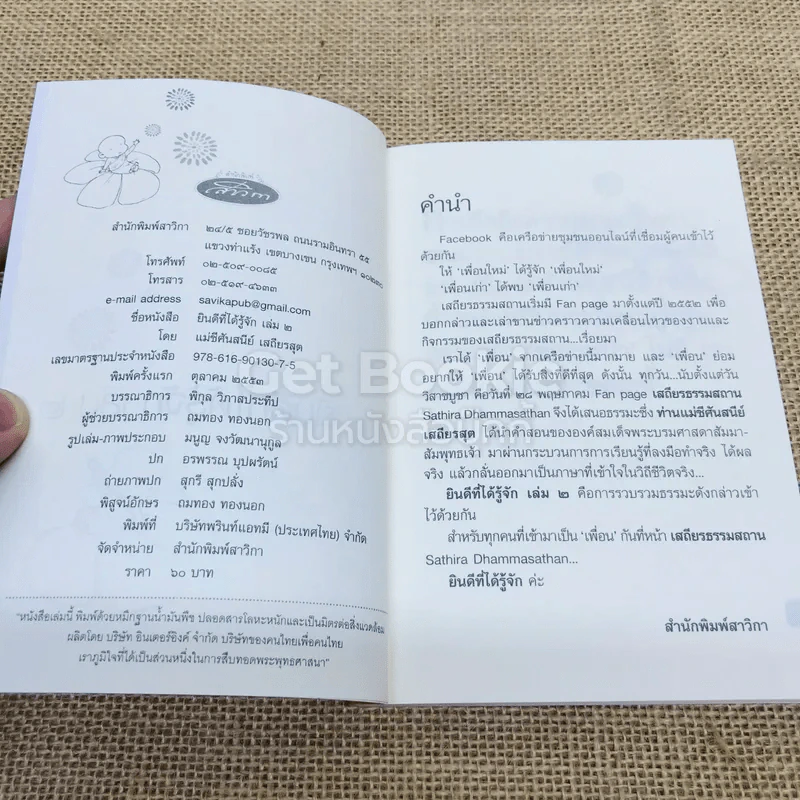 สำนักพิมพ์
สาวิกา
สำนักพิมพ์สาวิกา ๒๔/๕ ซอยวัชรพล ถนนรามอินทรา ๕๕
แขวงท่าแร้ง เขตบางเขน กรุงเทพฯ ๑๐๒๓๐
โทรศัพท์ ๐๒-๕๐๙-๐๐๘๕
โทรสาร ๐๒-๕๑๙-๔๖๓๓
e-mail address savikapub@gmail.com
ชื่อหนังสือ ยินดีที่ได้รู้จัก เล่ม ๒
โดย แม่ชีศันสนีย์ เสถียรสุต
เลขมาตรฐานประจำหนังสือ 978-616-90130-7-5
พิมพ์ครั้งแรก ตุลาคม ๒๕๕๓
บรรณาธิการ พิกุล วิภาสประทีป
ผู้ช่วยบรรณาธิการ ถมทอง ทองนอก
รูปเล่ม-ภาพประกอบ มนูญ จงวัฒนานุกูล
ปก อรพรรณ บุปผรัตน์
ถ่ายภาพปก สุกรี สุกปลั่ง
พิสูจน์อักษร ถมทอง ทองนอก
พิมพ์ที่ บริษัทพรินท์แอทมี (ประเทศไทย) จำกัด
จัดจำหน่าย สำนักพิมพ์สาวิกา
ราคา ๖๐ บาท
"หนังสือเล่มนี้ พิมพ์ด้วยหมึกฐานน้ำมันพืช ปลอดสารโลหะหนักและเป็นมิตรต่อสิ่งแวดล้อม
ผลิตโดย บริษัท อินเตอร์อิงค์ จำกัด บริษัทของคนไทยเพื่อคนไทย
เราภูมิใจที่ได้เป็นส่วนหนึ่งในการสืบทอดพระพุทธศาสนา"
คำนำ
Facebook คือเครือข่ายชุมชนออนไลน์ที่เชื่อมผู้คนเข้าไว้
ด้วยกัน
ให้ 'เพื่อนใหม่' ได้รู้จัก 'เพื่อนใหม่'
'เพื่อนเก่า' ได้พบ 'เพื่อนเก่า'
เสถียรธรรมสถานเริ่มมี Fan page มาตั้งแต่ปี ๒๕๕๒ เพื่อ
บอกกล่าวและเล่าขานข่าวคราวความเคลื่อนไหวของงานและ
กิจกรรมของเสถียรธรรมสถาน...เรื่อยมา
เราได้ 'เพื่อน' จากเครือข่ายนี้มากมาย และ 'เพื่อน' ย่อม
อยากให้ 'เพื่อน' ได้รับสิ่งที่ดีที่สุด ดังนั้น ทุกวัน...นับตั้งแต่วัน
วิสาขบูชา คือวันที่ ๒๘ พฤษภาคม Fan page เสถียรธรรมสถาน
Sathira Dhammasathan จึงได้เสนอธรรมะซึ่ง ท่านแม่ชีศันสนีย์
เสถียรสุต ได้นำคำสอนขององค์สมเด็จพระบรมศาสดาสัมมา-
สัมพุทธเจ้า มาผ่านกระบวนการการเรียนรู้ที่ลงมือทำจริง ได้ผล
จริง แล้วกลั่นออกมาเป็นภาษาที่เข้าใจในวิถีชีวิตจริง...
ยินดีที่ได้รู้จัก เล่ม ๒ คือการรวบรวมธรรมะดังกล่าวเข้า
ไว้ด้วยกัน
สำหรับทุกคนที่เข้ามาเป็น 'เพื่อน' กันที่หน้า เสถียรธรรมสถาน
Sathira Dhammasathan...
ยินดีที่ได้รู้จัก ค่ะ
สำนักพิมพ์สาวิกา
Get Bookie
ร้านหนังสือมือสอง